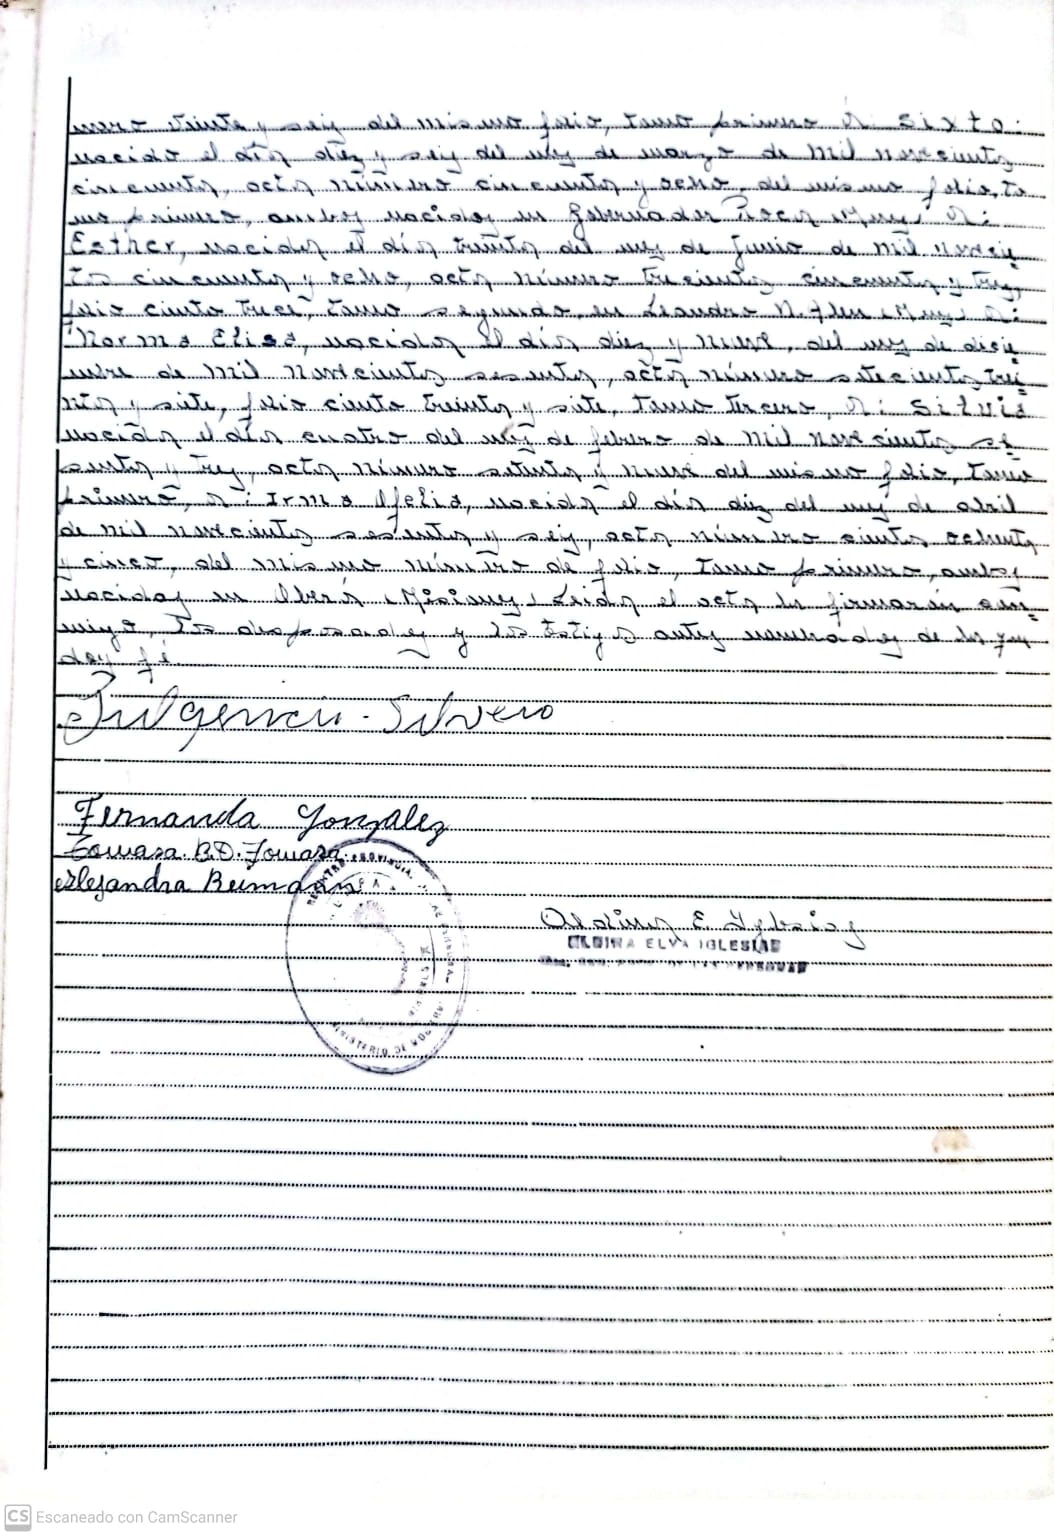 mero veinte y seis del mismo folio, tomo primero A: Sixto:
nacido el día diez y seis del mes de marzo de mil novecientos
cincuenta, acta número cincuenta y ocho, del mismo folio, to
mo primero, ambos nacidos en Gobernador Roca (Mnes) A:
Esther, nacida el día treinta del mes de Junio de mil novecie
tos cincuenta y ocho, acta número trecientos cincuenta y tres,
folio ciento trece, tomo segundo, en Leandro N. Alem (Mnes) A:
Norma Elisa, nacida el día diez y nueve, del mes de dicie
mbre de mil novecientos sesenta, acta número setecientos trei
nta y siete, folio ciento treinta y siete, tomo tercero, A: Silvia
nacida el día cuatro del mes de febrero de mil novecientos se
senta y tres, acta número setenta y nueve del mismo folio, tomo
primero, A: Irma Ofelia, nacida el día diez del mes de abril
de mil novecientos sesenta y seis, acta número ciento ochenta
y cinco, del mismo número de folio, tomo primero, ambas
nacidas en Oberá (Misiones) Leida el acta la firmarán con
migo, los desposados y los testigos antes nombrados de lo que
doy fé.
Fulgencio Silvero
Fernanda Gonzalez
Tomasa. B.D.
Alejandra Beimann
REGISTRO PROVINCIAL DE LAS PERSONAS
MINISTERIO DE
Aldina E. Iglesias
ALDINA ELVA IGLESIAS
DE LAS PERSONAS
CS Escaneado con CamScanner